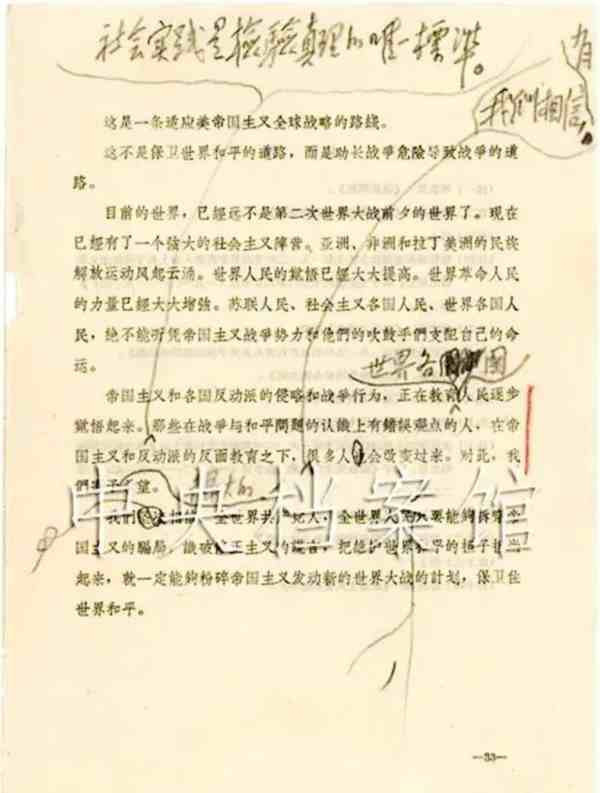 社会实践是检驗真理的唯一標准。
有
我们相信。
这是一条适应美帝国主义全球战略的路线。
这不是保卫世界和平的道路，而是助长战爭危险导致战爭的道
路。
目前的世界，已經远不是第二次世界大战前夕的世界了。现在
已經有了一个強大的社会主义陣营。亚洲、非洲和拉丁美洲的民族
解放运动风起云涌。世界人民的覚悟已經大大提高。世界革命人民
的力量已經大大增強。苏联人民、社会主义各国人民、世界各国人
民，絶不能听凭帝国主义战爭势力和他們的吹鼓手們支配自己的命
运。
世界各国
帝国主义和各国反动派的侵略和战爭行为，正在教育人民逐步
覚悟起来。那些在战爭与和平問題的认識上有錯誤观点的人，在帝
国主义和反动派的反面教育之下，很多人会改变过来。对此，我
們寄予 望。
很大的
我們 相信，全世界共产党人，全世界人民只要能夠拆穿帝
国主义的騙局，識破修正主义的謊言，把維护世界和平的担子担当
起来，就一定能夠粉碎帝国主义发动新的世界大战的計划，保卫住
世界和平。
中央档案馆
—33—